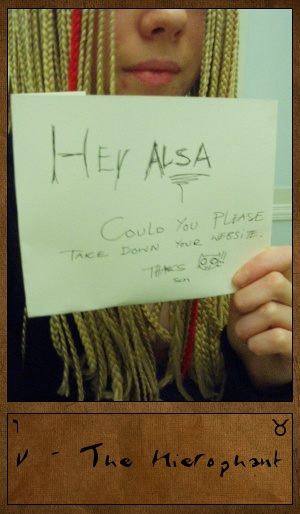 Hey ALSA
COULD YOU PLEASE
TAKE DOWN YOUR WEBSITE.
THANKS
V - The Hierophant